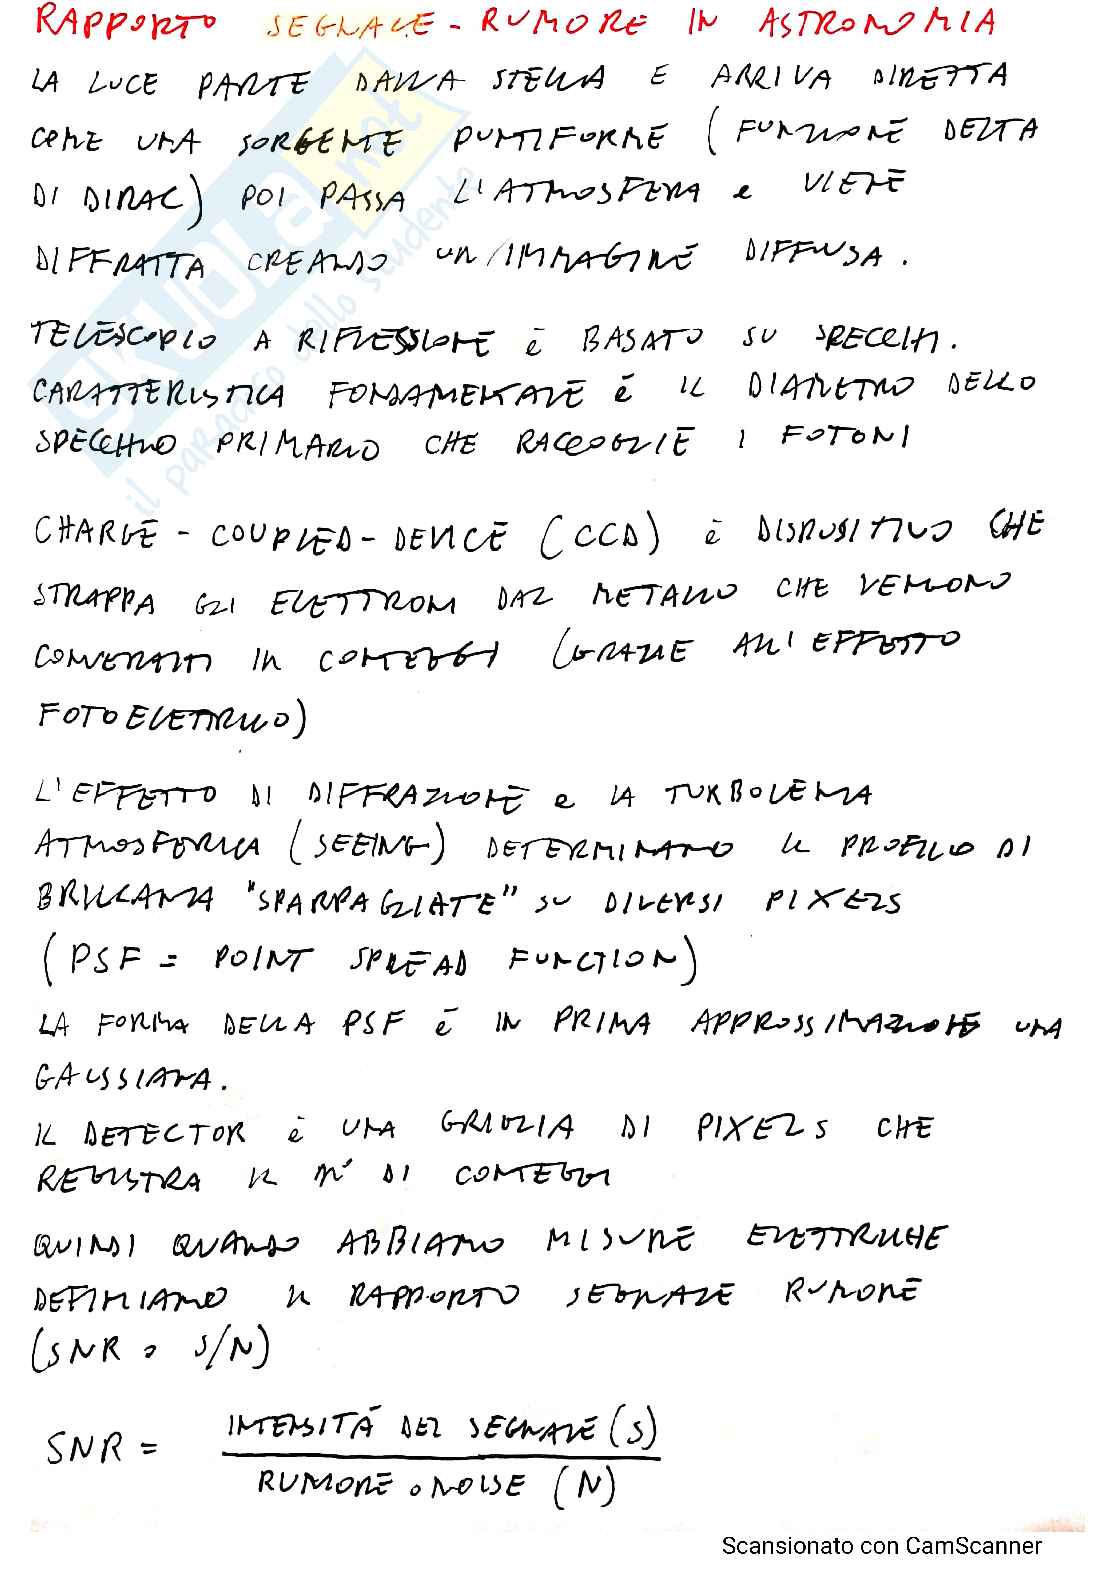 RAPPORTO SEGNALE - RUMORE IN ASTRONOMIA
LA LUCE PARTE DALLA STELLA E ARRIVA DIRETTA
COME UNA SORGENTE PUNTIFORME (FUNZIONE DELTA
DI DIRAC) POI PASSA L'ATMOSFERA e VIENE
DIFFRATTA CREANDO UN'IMMAGINE DIFFUSA.
TELESCOPIO A RIFLESSIONE è BASATO SU SPECCHI.
CARATTERISTICA FONDAMENTALE è IL DIAMETRO DELLO
SPECCHIO PRIMARIO CHE RACCOGLIE I FOTONI
CHARGE - COUPLED - DEVICE (CCD) è DISPOSITIVO CHE
STRAPPA GLI ELETTRONI DAL METALLO CHE VENGONO
CONVERTITI IN CONTEGGI (GRAZIE ALL'EFFETTO
FOTOELETTRICO)
L'EFFETTO DI DIFFRAZIONE e LA TURBOLENZA
ATMOSFERICA (SEEING) DETERMINANO IL PROFILO DI
BRILLANZA "SPARPAGLIATE" SU DIVERSI PIXELS
(PSF = POINT SPREAD FUNCTION)
LA FORMA DELLA PSF è IN PRIMA APPROSSIMAZIONE UNA
GAUSSIANA.
IL DETECTOR è UNA GRIGLIA DI PIXELS CHE
REGISTRA IL N° DI CONTEGGI
QUINDI QUANDO ABBIAMO MISURE ELETTRICHE
DEFINIAMO IL RAPPORTO SEGNALE RUMORE
(SNR o S/N)
INTENSITÀ DEL SEGNALE (S)
SNR =
RUMORE o NOISE (N)
SKUOLA.net
il paradiso dello studente
Scansionato con CamScanner